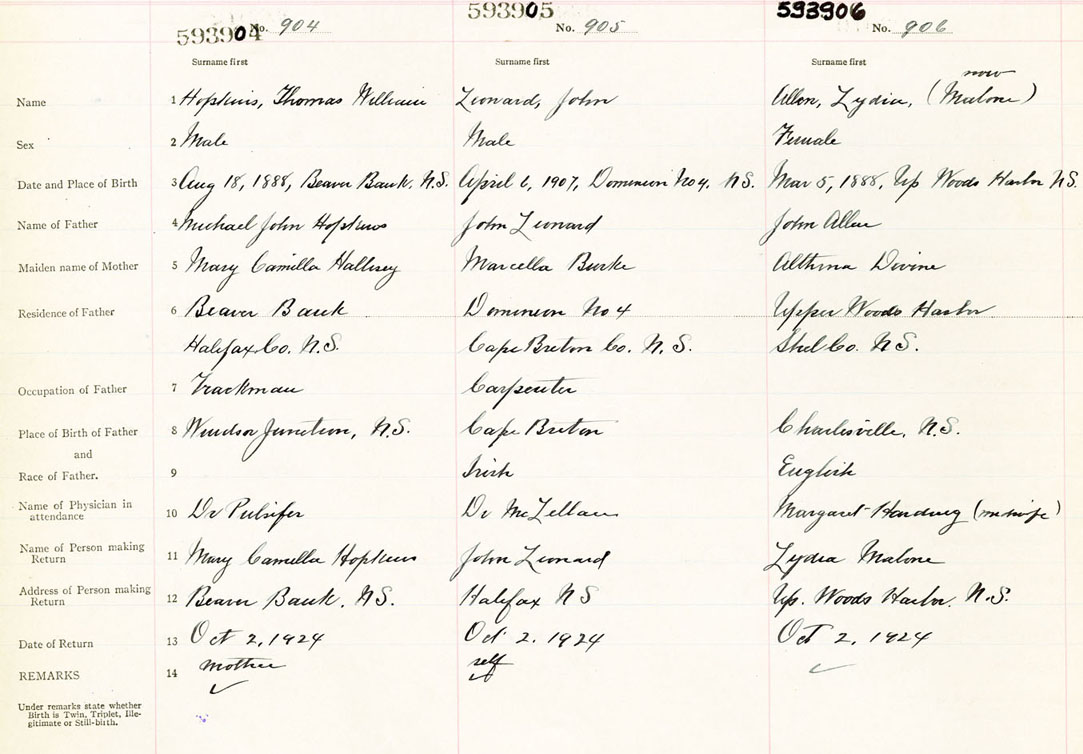 593904 593905 593906
No. 904 No. 905 No. 906
Surname first Surname first Surname first
now
Name 1 Hopkins, Thomas William Leonard, John Allen, Lydia, (Malone)
Sex 2 Male Male Female
Date and Place of Birth 3 Aug 18, 1888, Beaver Bank, N.S. April 6, 1907, Dominion No 4, N.S. Mar 5, 1888, Up Woods Harbor N.S.
Name of Father 4 Michael John Hopkins John Leonard John Allen
Maiden name of Mother 5 Mary Camilla Hallisey Marcella Burke Divine
Residence of Father 6 Beaver Bank Dominion No 4 Upper Woods Harbor
Halifax Co. N.S. Cape Breton Co. N. S. Shel Co. N.S.
Occupation of Father 7 Trackman Carpenter
Place of Birth of Father 8 Windsor Junction, N.S. Cape Breton Charlisville, N.S.
and
Race of Father. 9 Irish English
Name of Physician in
attendance 10 Dr Pulsifer Dr McLellan Margaret Harding (midwife)
Name of Person making
Return 11 Mary Camilla Hopkins John Leonard Lydia Malone
Address of Person making
Return 12 Beaver Bank, N.S. Halifax N S Up. Woods Harbor. N.S.
Date of Return 13 Oct 2, 1924 Oct 2. 1924 Oct 2, 1924
REMARKS 14 mother self
Under remarks state whether
Birth is Twin, Triplet, Ille-
gitimate or Still-birth.